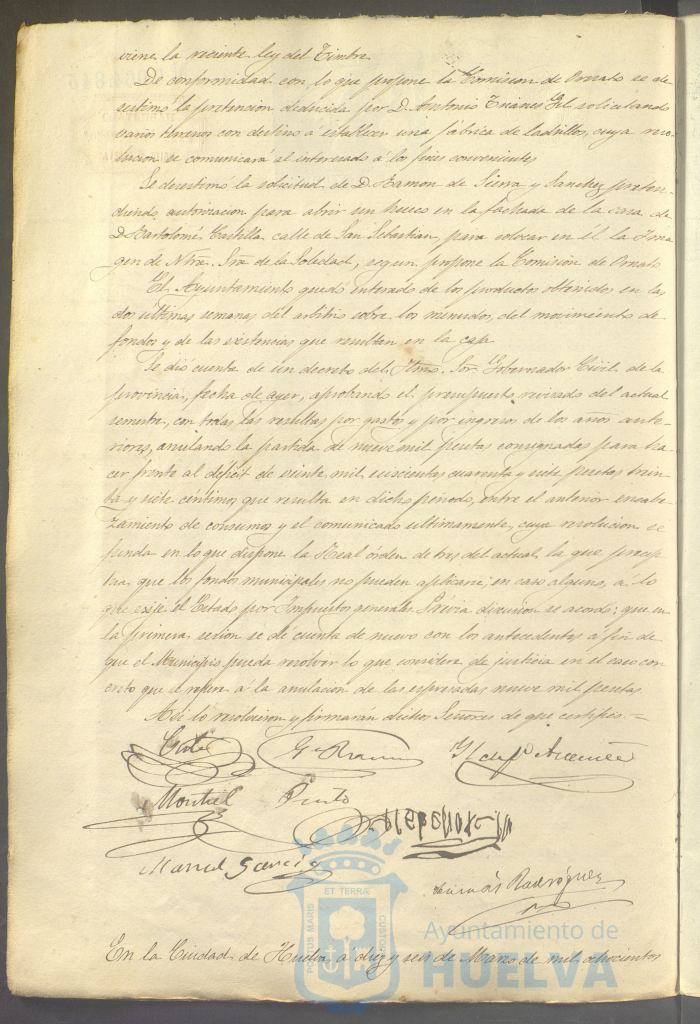 viene la reciente ley del Timbre.
De conformidad con lo que propone la Comision de Ornato se de-
sestimó la pretencion deducida por D. Antonio Trianes Gil solicitando
varios terrenos con destino á establecer una fábrica de ladrillos, cuya reso-
lucion se comunicará al interesado á los fines convenientes.
Se desestimó la solicitud de D. Ramon de Sierra y Sanchez, preten-
diendo autorizacion para abrir un hueco en la fachada de la casa de
D. Bartolomé Castilla calle de San Sebastian, para colocar en él la Ima
gen de Ntra. Sra. de la Soledad, segun propone la Comision de Ornato.
El Ayuntamiento quedó enterado de los productos obtenidos en las
dos ultimas semanas del arbitrio sobre los menudos, del movimiento de
fondos y de las existencias que resultan en la caja.
Se dió cuenta de un decreto del Iltmo. Sor. Gobernador Civil de la
provincia, fecha de ayer, aprobando el presupuesto revisado del actual
semestre, con todas las resultas por gastos y por ingresos de los años ante-
riores, anulando la partida de nueve mil pesetas consignadas para ha-
cer frente al deficit de veinte mil seiscientas cuarenta y siete pesetas trein-
ta y siete céntimos que resulta en dicho periodo, entre el anterior encabe-
zamiento de consumos y el comunicado ultimamente, cuya resolucion se
funda en lo que dispone la Real órden de tres del actual, la que precep-
tua que los fondos municipales no pueden aplicarse, en caso alguno, á lo
que exije el Estado por Impuestos generales. Prévia discusion se acordó; que en
la primera sesion se de cuenta de nuevo con los antecedentes a fin de
que el Municipio pueda resolver lo que considere de justicia en el caso con
creto que se refiere á la anulacion de las espresadas nueve mil pesetas.
Asi lo resolvieron y firmarán dichos Señores de que certifico.=
Montiel Pinto
Manuel Garcia
Rodríguez
PORTUS MARIS ET TERRÆ CUSTODIA
Ayuntamiento de
HUELVA
En la Ciudad de Huelva a diez y seis de Marzo de mil ochocientos